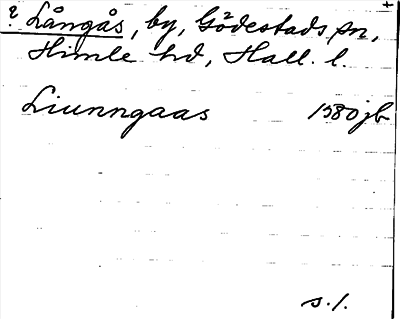 ? Långås, by, Gödestads sn,
Himle hd, Hall. l.
Liunngaas 1580 jb
s. 1.